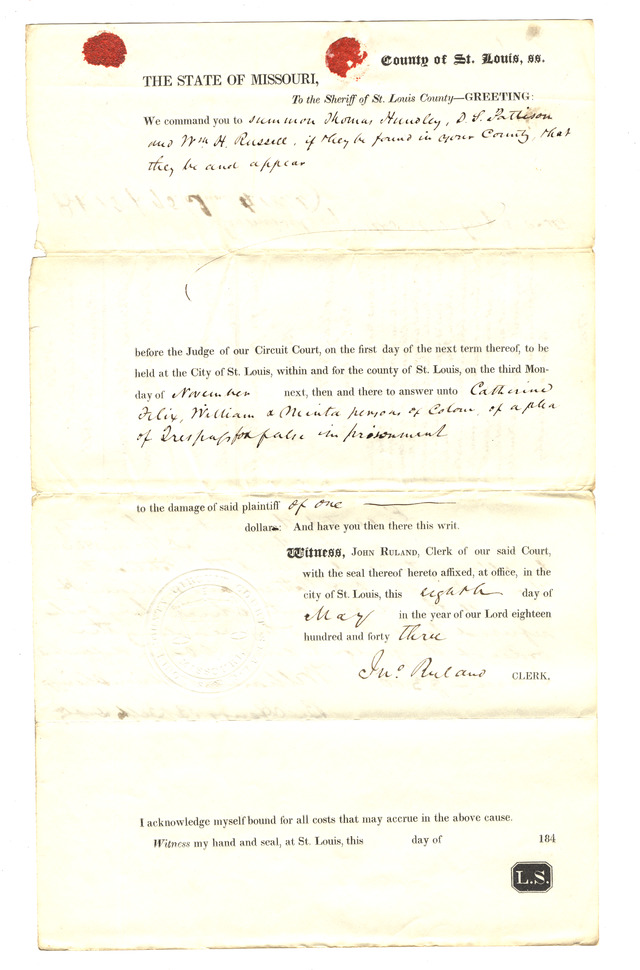 County of St. Louis, ss.
THE STATE OF MISSOURI,
To the Sheriff of St. Louis County—GREETING:
We command you to summon Thomas Hundley, D. S. Pattison
and Wm H. Russell, if they be found in your County, that
they be and appear
before the Judge of our Circuit Court, on the first day of the next term thereof, to be
held at the City of St. Louis, within and for the county of St. Louis, on the third Mon-
day of November next, then and there to answer unto Catherine
Felix, William & Minta persons of Colour, of a plea
of Trespass for false imprisonment
to the damage of said plaintiff of one
dollar: And have you then there this writ.
Witness, JOHN RULAND, Clerk of our said Court,
with the seal thereof hereto affixed, at office, in the
city of St. Louis, this eighth day of
May in the year of our Lord eighteen
hundred and forty three
Jno. Ruland CLERK.
I acknowledge myself bound for all costs that may accrue in the above cause.
Witness my hand and seal, at St. Louis, this day of 184
L.S.